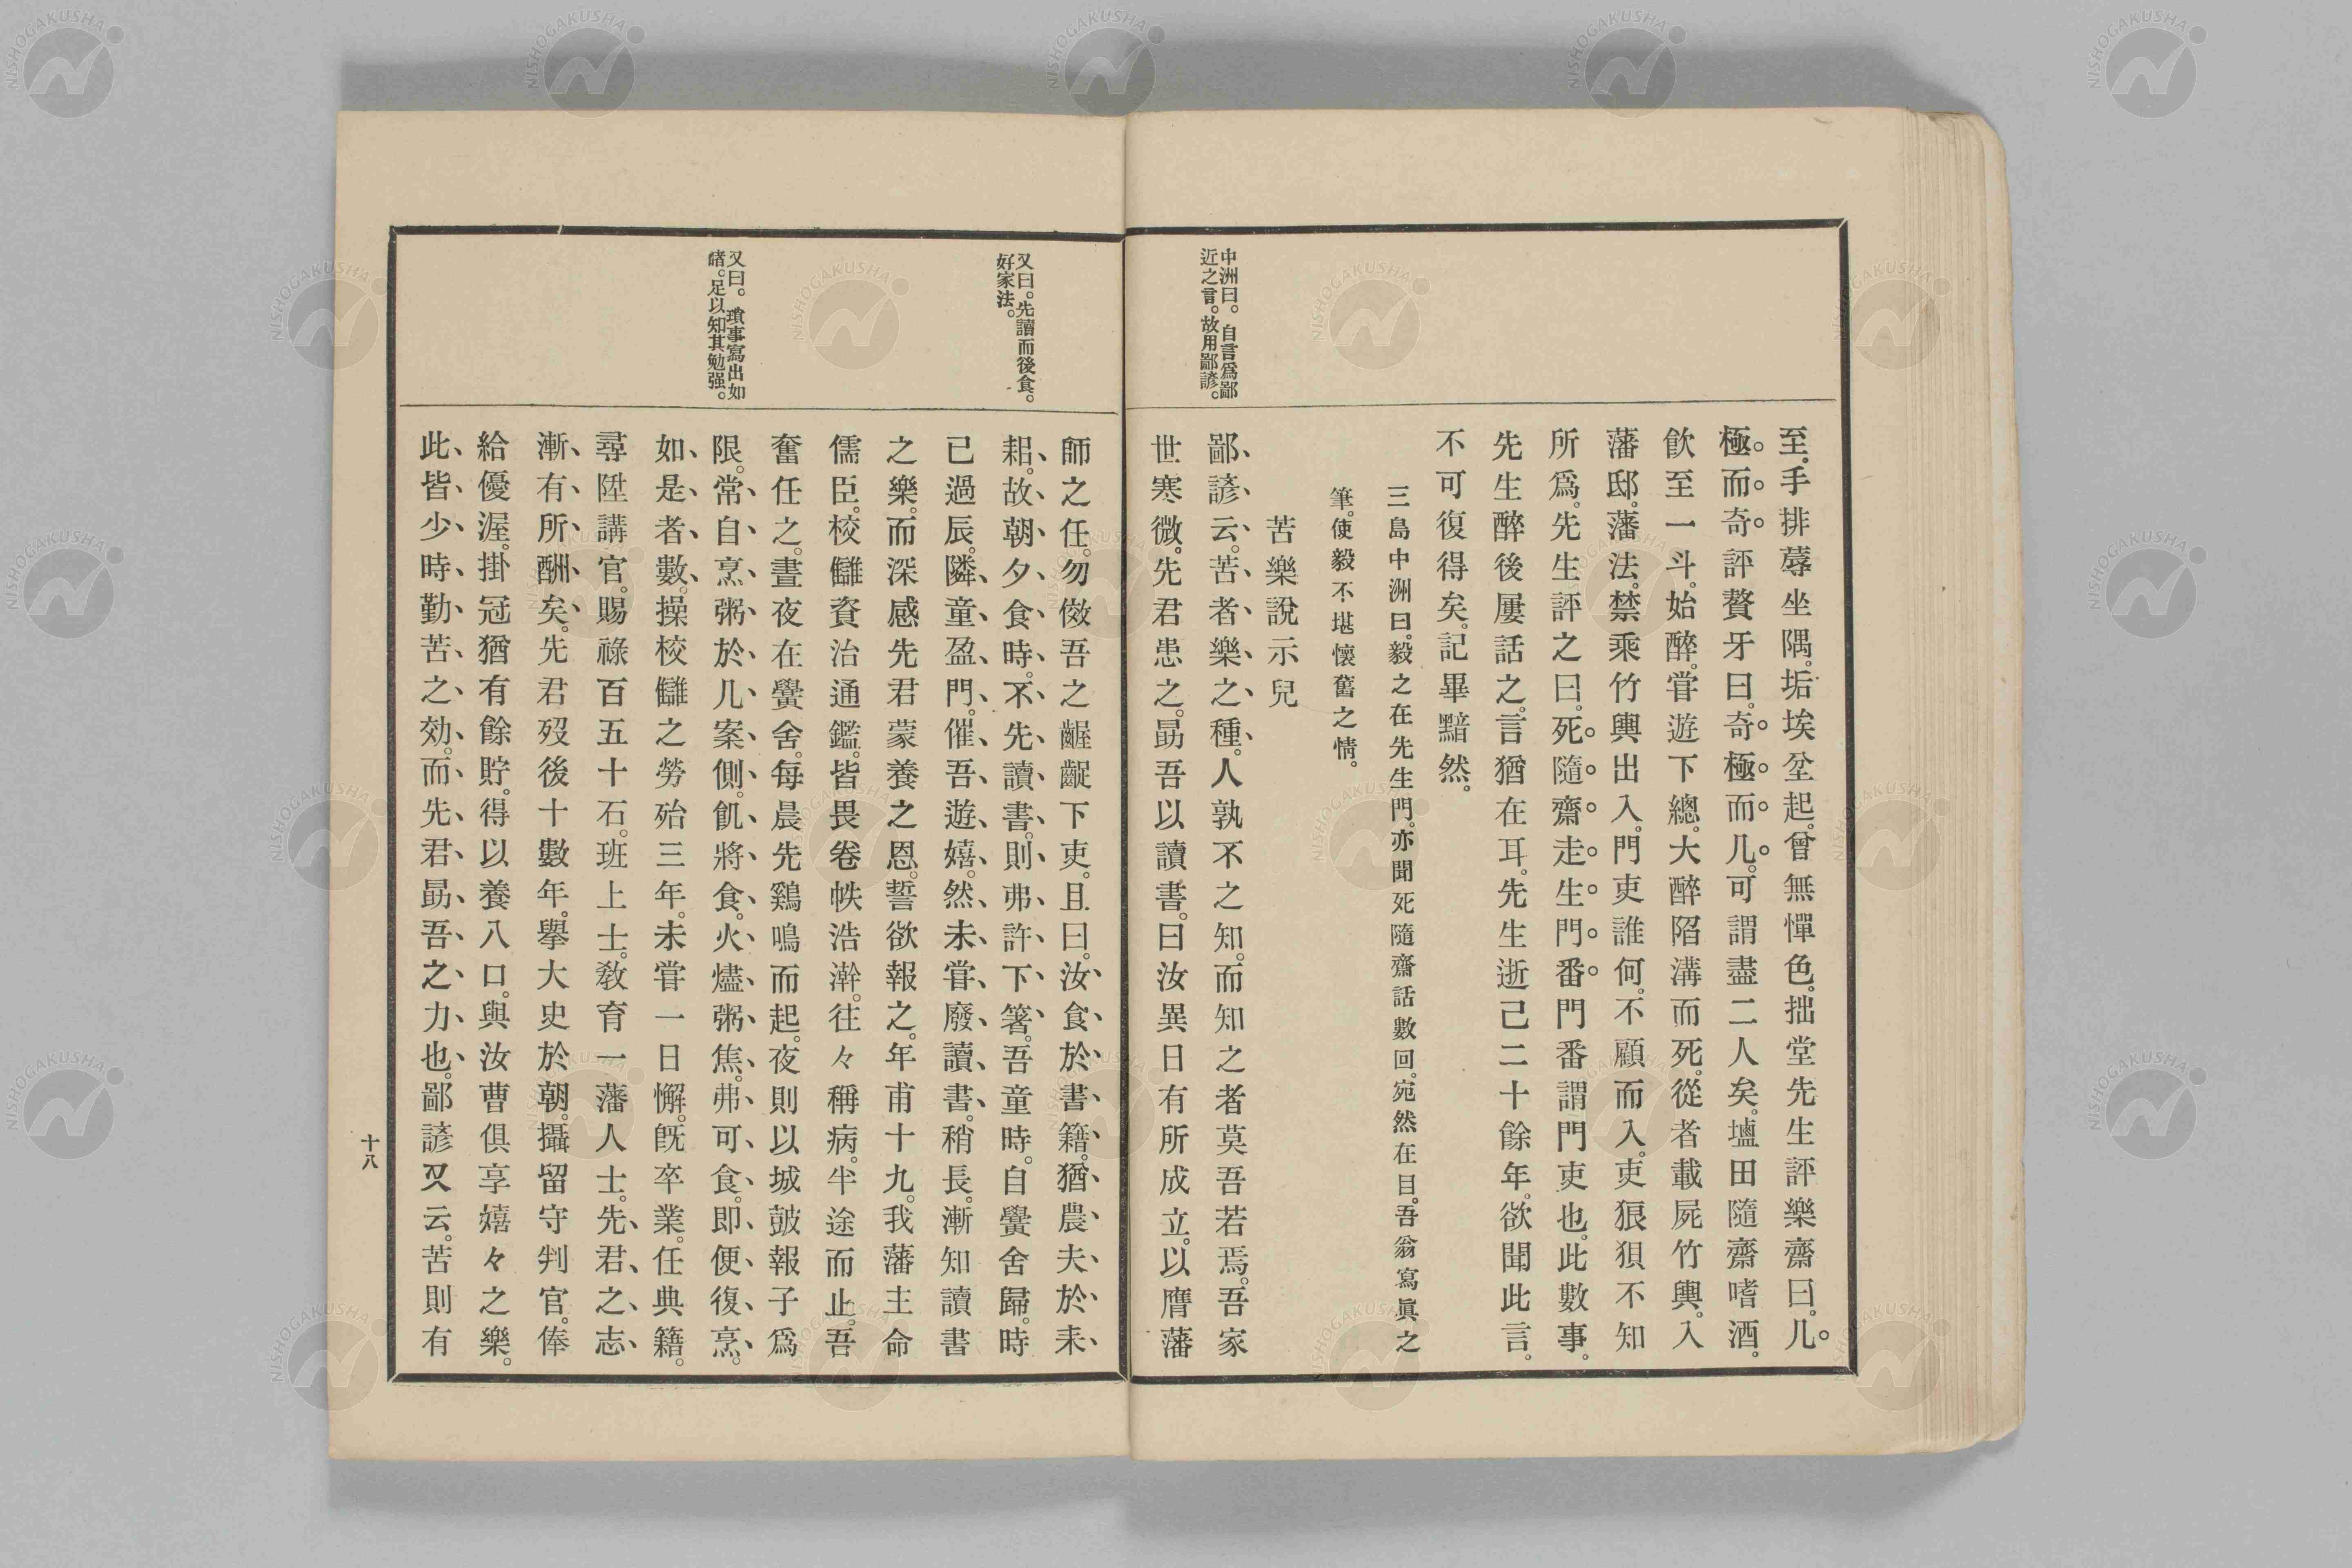 至。手排蓐坐隅。垢埃坌起。曾無憚色。拙堂先生評樂齋曰。儿
極而奇。評贅牙曰。奇極而儿。可謂盡二人矣。壚田隨齋嗜酒。
飮至一斗。始醉。甞遊下總。大醉陷溝而死。從者載屍竹輿。入
藩邸。藩法。禁乘竹輿出入。門吏誰何。不顧而入。吏狠狽不知
所爲。先生評之曰。死隨齋走生門番。門番謂門吏也。此數事。
先生醉後屢話之。言猶在耳。先生逝已二十餘年。欲聞此言。
不可復得矣。記畢黯然。
三島中洲曰。毅之在先生門。亦聞死隨齋話數回。宛然在目。吾翁寫眞之
筆。使毅不堪懷舊之情。
苦樂說示兒
中洲曰。自言爲鄙
近之言。故用鄙諺。
鄙諺云。苦者樂之種。人孰不之知。而知之者莫吾若焉。吾家
世寒微。先君患之。勗吾以讀書。曰汝異日有所成立。以膺藩
師之任。勿傚吾之齷齪下吏。且曰。汝食於書籍。猶農夫於耒
又曰。先讀而後食。
好家法。
耜。故朝夕食時。不先讀書。則弗許下箸。吾童時。自黌舍歸。時
已過辰。隣童盈門。催吾遊嬉。然未甞廢讀書。稍長。漸知讀書
之樂。而深感先君蒙養之恩。誓欲報之。年甫十九。我藩主命
儒臣。校讎資治通鑑。皆畏卷帙浩澣。往々稱病。半途而止。吾
奮任之。晝夜在黌舍。每晨先鷄鳴而起。夜則以城鼓報子爲
又曰。瑣事寫出如
睹。足以知其勉强。
限。常自烹粥於几案側。飢將食。火燼粥焦。弗可食。卽便復烹。
如是者數。操校讎之勞殆三年。未甞一日懈。旣卒業。任典籍。
尋陞講官。賜祿百五十石。班上士。敎育一藩人士。先君之志、
漸有所酬矣。先君歿後十數年。擧大史於朝。攝留守判官。俸
給優渥。掛冠猶有餘貯。得以養八口。與汝曹俱享嬉々之樂。
此皆少時勤苦之効。而先君勗吾之力也。鄙諺又云。苦則有
十八